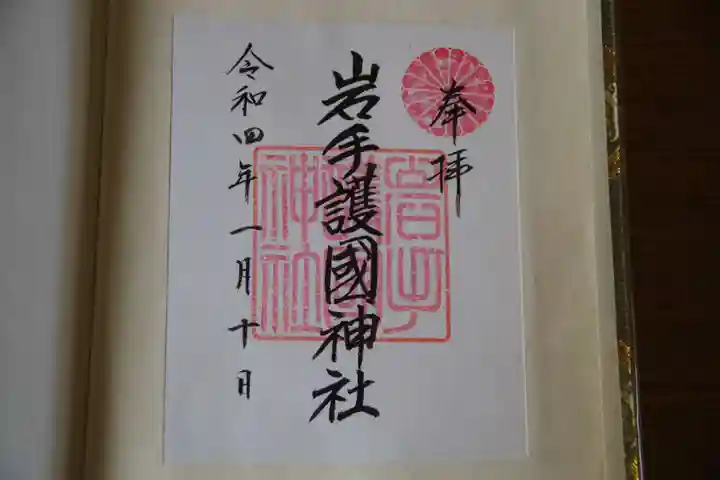 奉拝
岩手護國神社
岩手護國神社
令和四年一月十日